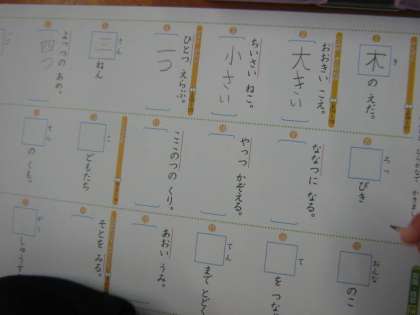 き
木のえだ。
おおきい こえ。
大きい
ちいさい ねこ。
小さい
ひとつ えらぶ。
一つ
さん
三ねん
よっつの あめ。
四つ
ろっ
ぴき
ななつに なる。
やっつ かぞえる。
ここのつの くり。
こ
どもたち
の くも。
おんな
のこ
て
を つな
てん
まで とど
あおい うみ。
そとを みる。